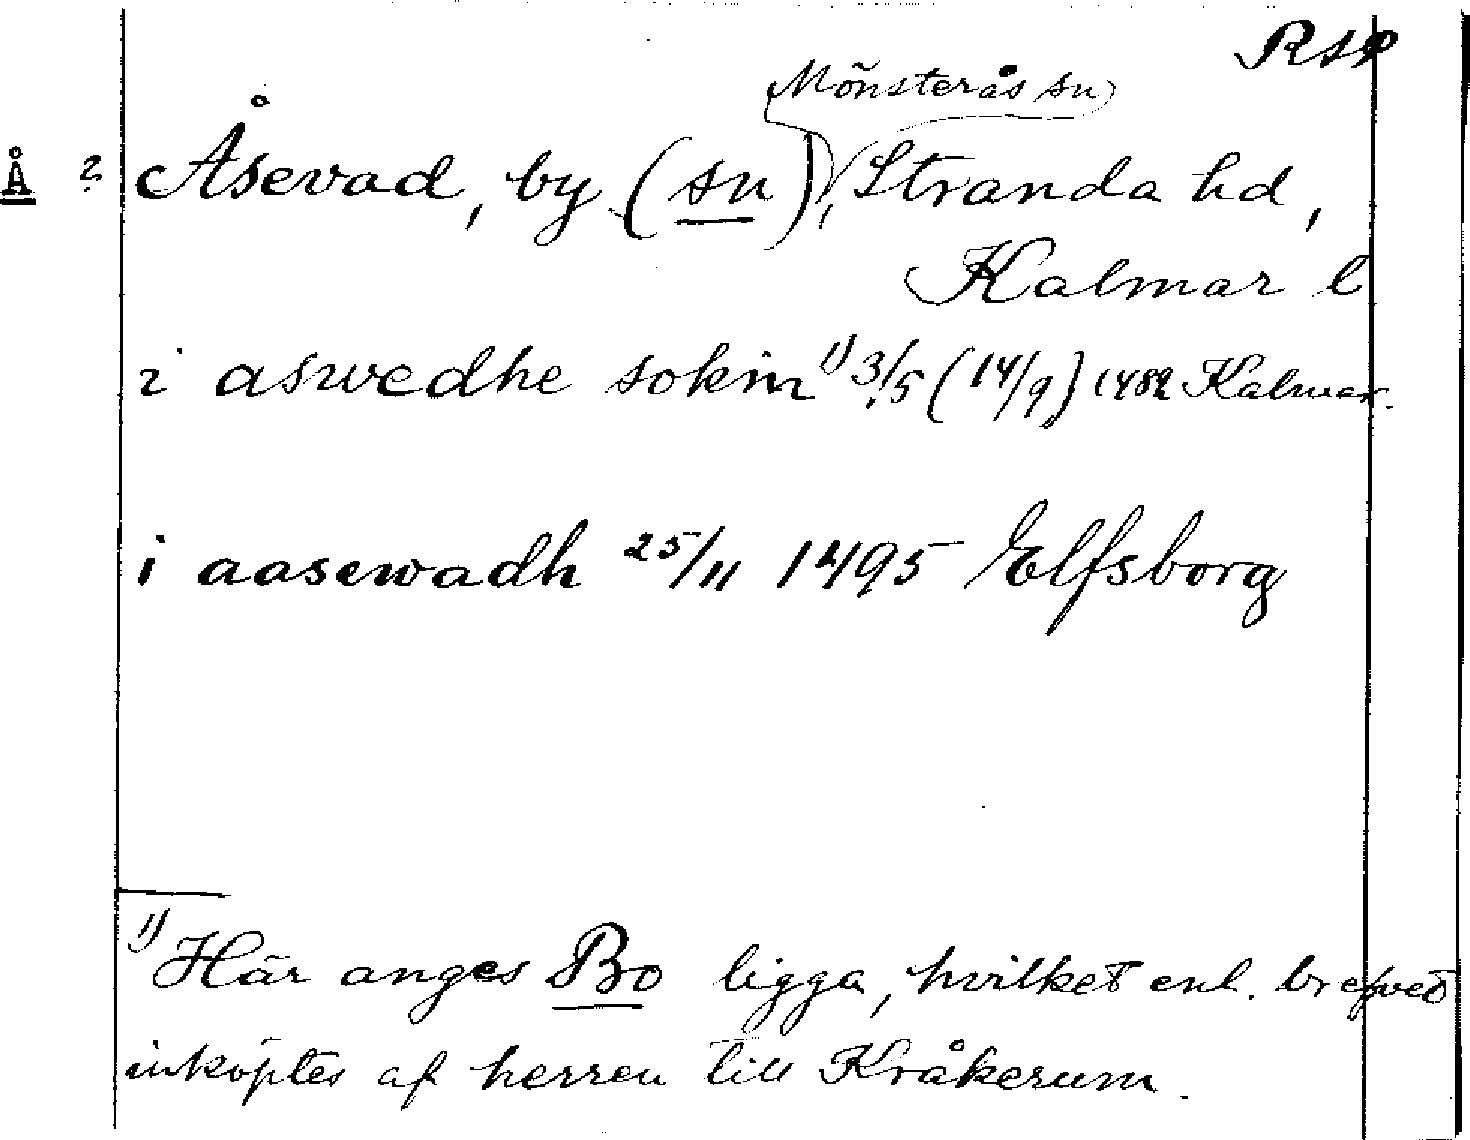 RAP
Mönsterås sn
Å ? Åsevad, by (sn), Stranda hd,
Kalmar l
i aswedhe sokin 1) 3/5 (14/9) 1482 Kalmar.
i aasewadh 25/11 1495 Elfsborg
1) Här anges Bo ligga, hvilket enl. brefvet
inköptes af herren till Kråkerum.